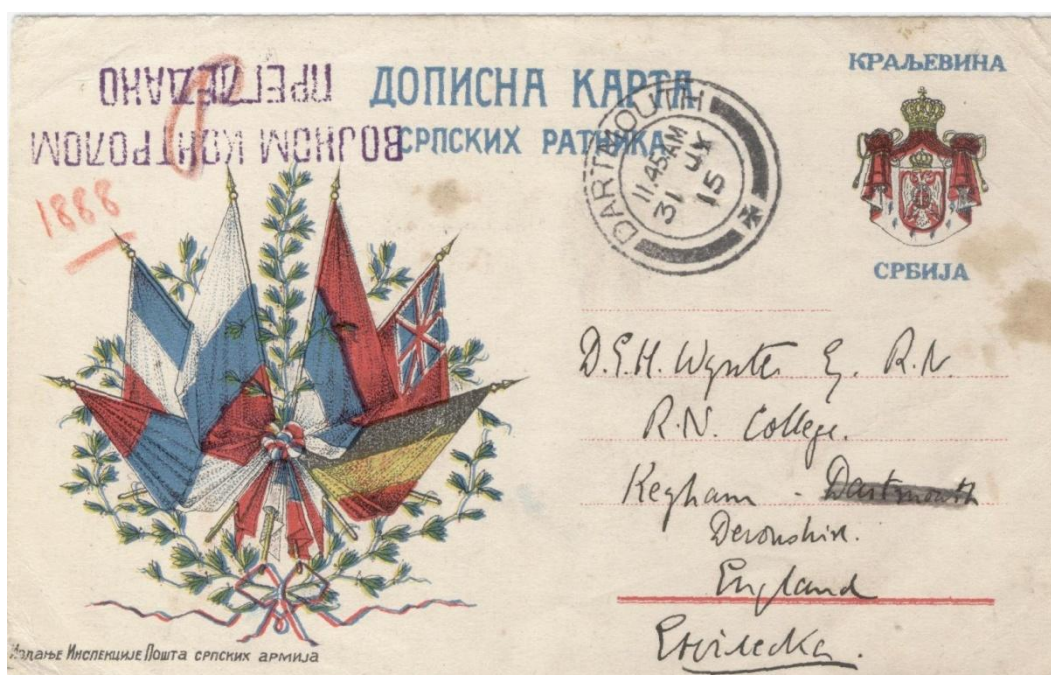 ВОЈНОМ КОНТРОЛОМ
ПРЕГЛЕДАНО
1888
ДОПИСНА КАРТА
СРПСКИХ РАТНИКА
DARTMOUTH
11.45 AM
31 JY
15
КРАЉЕВИНА
СРБИЈА
R.N.
R.N. College.
Keyham - Dartmouth
Devonshire.
England
Енглеска.
Издање Инспекције Пошта српских армија